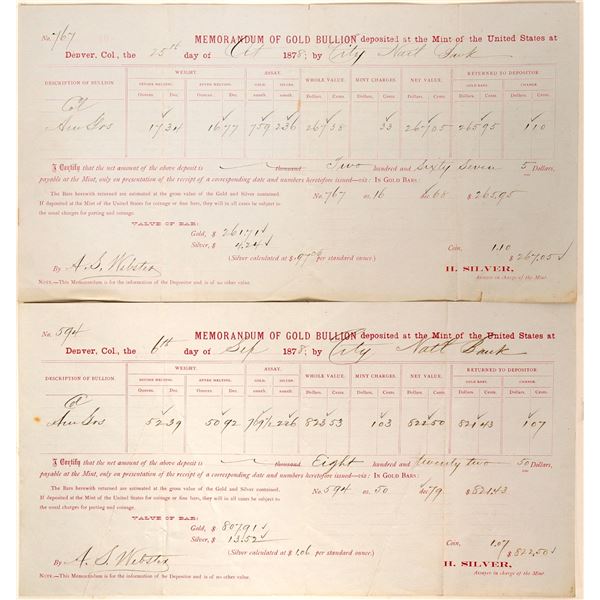 No. 767 MEMORANDUM OF GOLD BULLION deposited at the Mint of the United States at
Denver, Col., the 25th day of Oct 1878; by City Natl Bank
DESCRIPTION OF BULLION. WEIGHT. ASSAY. WHOLE VALUE. MINT CHARGES. NET VALUE. RETURNED TO DEPOSITOR
BEFORE MELTING. AFTER MELTING. GOLD. SILVER. GOLD BARS. CHANGE.
Ounces. Dec. Ounces. Dec. thousandths. thousandths. Dollars. Cents. Dollars. Cents. Dollars. Cents. Dollars. Cents. Dollars. Cents.
Col
17 34 16 77 759 236 267 38 33 267 05 265 95 1 10
I Certify that the net amount of the above deposit is thousand Two hundred and Sixty Seven 5 Dollars,
payable at the Mint, only on presentation of the receipt of a corresponding date and numbers heretofore issued—viz: IN GOLD BARS:
The Bars herewith returned are estimated at the gross value of the Gold and Silver contained. No. 767 oz. 16 dec 68 $ 265.95
If deposited at the Mint of the United States for coinage or fine bars, they will in all cases be subject to
the usual charges for parting and coinage.
VALUE OF BAR:
Gold, $ 261.71
Silver, $ 4.24 Coin, 1.10
(Silver calculated at $ .97 per standard ounce.) $ 267.05
By A. S. Webster H. SILVER,
Assayer in charge of the Mint.
NOTE.—This Memorandum is for the information of the Depositor and is of no other value.
No. 594 MEMORANDUM OF GOLD BULLION deposited at the Mint of the United States at
Denver, Col., the 6th day of Sep 1878; by City Natl Bank
DESCRIPTION OF BULLION. WEIGHT. ASSAY. WHOLE VALUE. MINT CHARGES. NET VALUE. RETURNED TO DEPOSITOR
BEFORE MELTING. AFTER MELTING. GOLD. SILVER. GOLD BARS. CHANGE.
Ounces. Dec. Ounces. Dec. thousandths. thousandths. Dollars. Cents. Dollars. Cents. Dollars. Cents. Dollars. Cents. Dollars. Cents.
Col
52 39 50 92 226 823 53 1 03 822 50 821 43 1 07
I Certify that the net amount of the above deposit is thousand Eight hundred and twenty two 50 Dollars,
payable at the Mint, only on presentation of the receipt of a corresponding date and numbers heretofore issued—viz: IN GOLD BARS:
The Bars herewith returned are estimated at the gross value of the Gold and Silver contained. No. 594 oz. 50 dec 79 $ 821.43
If deposited at the Mint of the United States for coinage or fine bars, they will in all cases be subject to
the usual charges for parting and coinage.
VALUE OF BAR:
Gold, $ 807.91
Silver, $ 13.52 Coin, 1.07
(Silver calculated at $ 1.06 per standard ounce.) $ 822.50
By A. S. Webster H. SILVER,
Assayer in charge of the Mint.
NOTE.—This Memorandum is for the information of the Depositor and is of no other value.